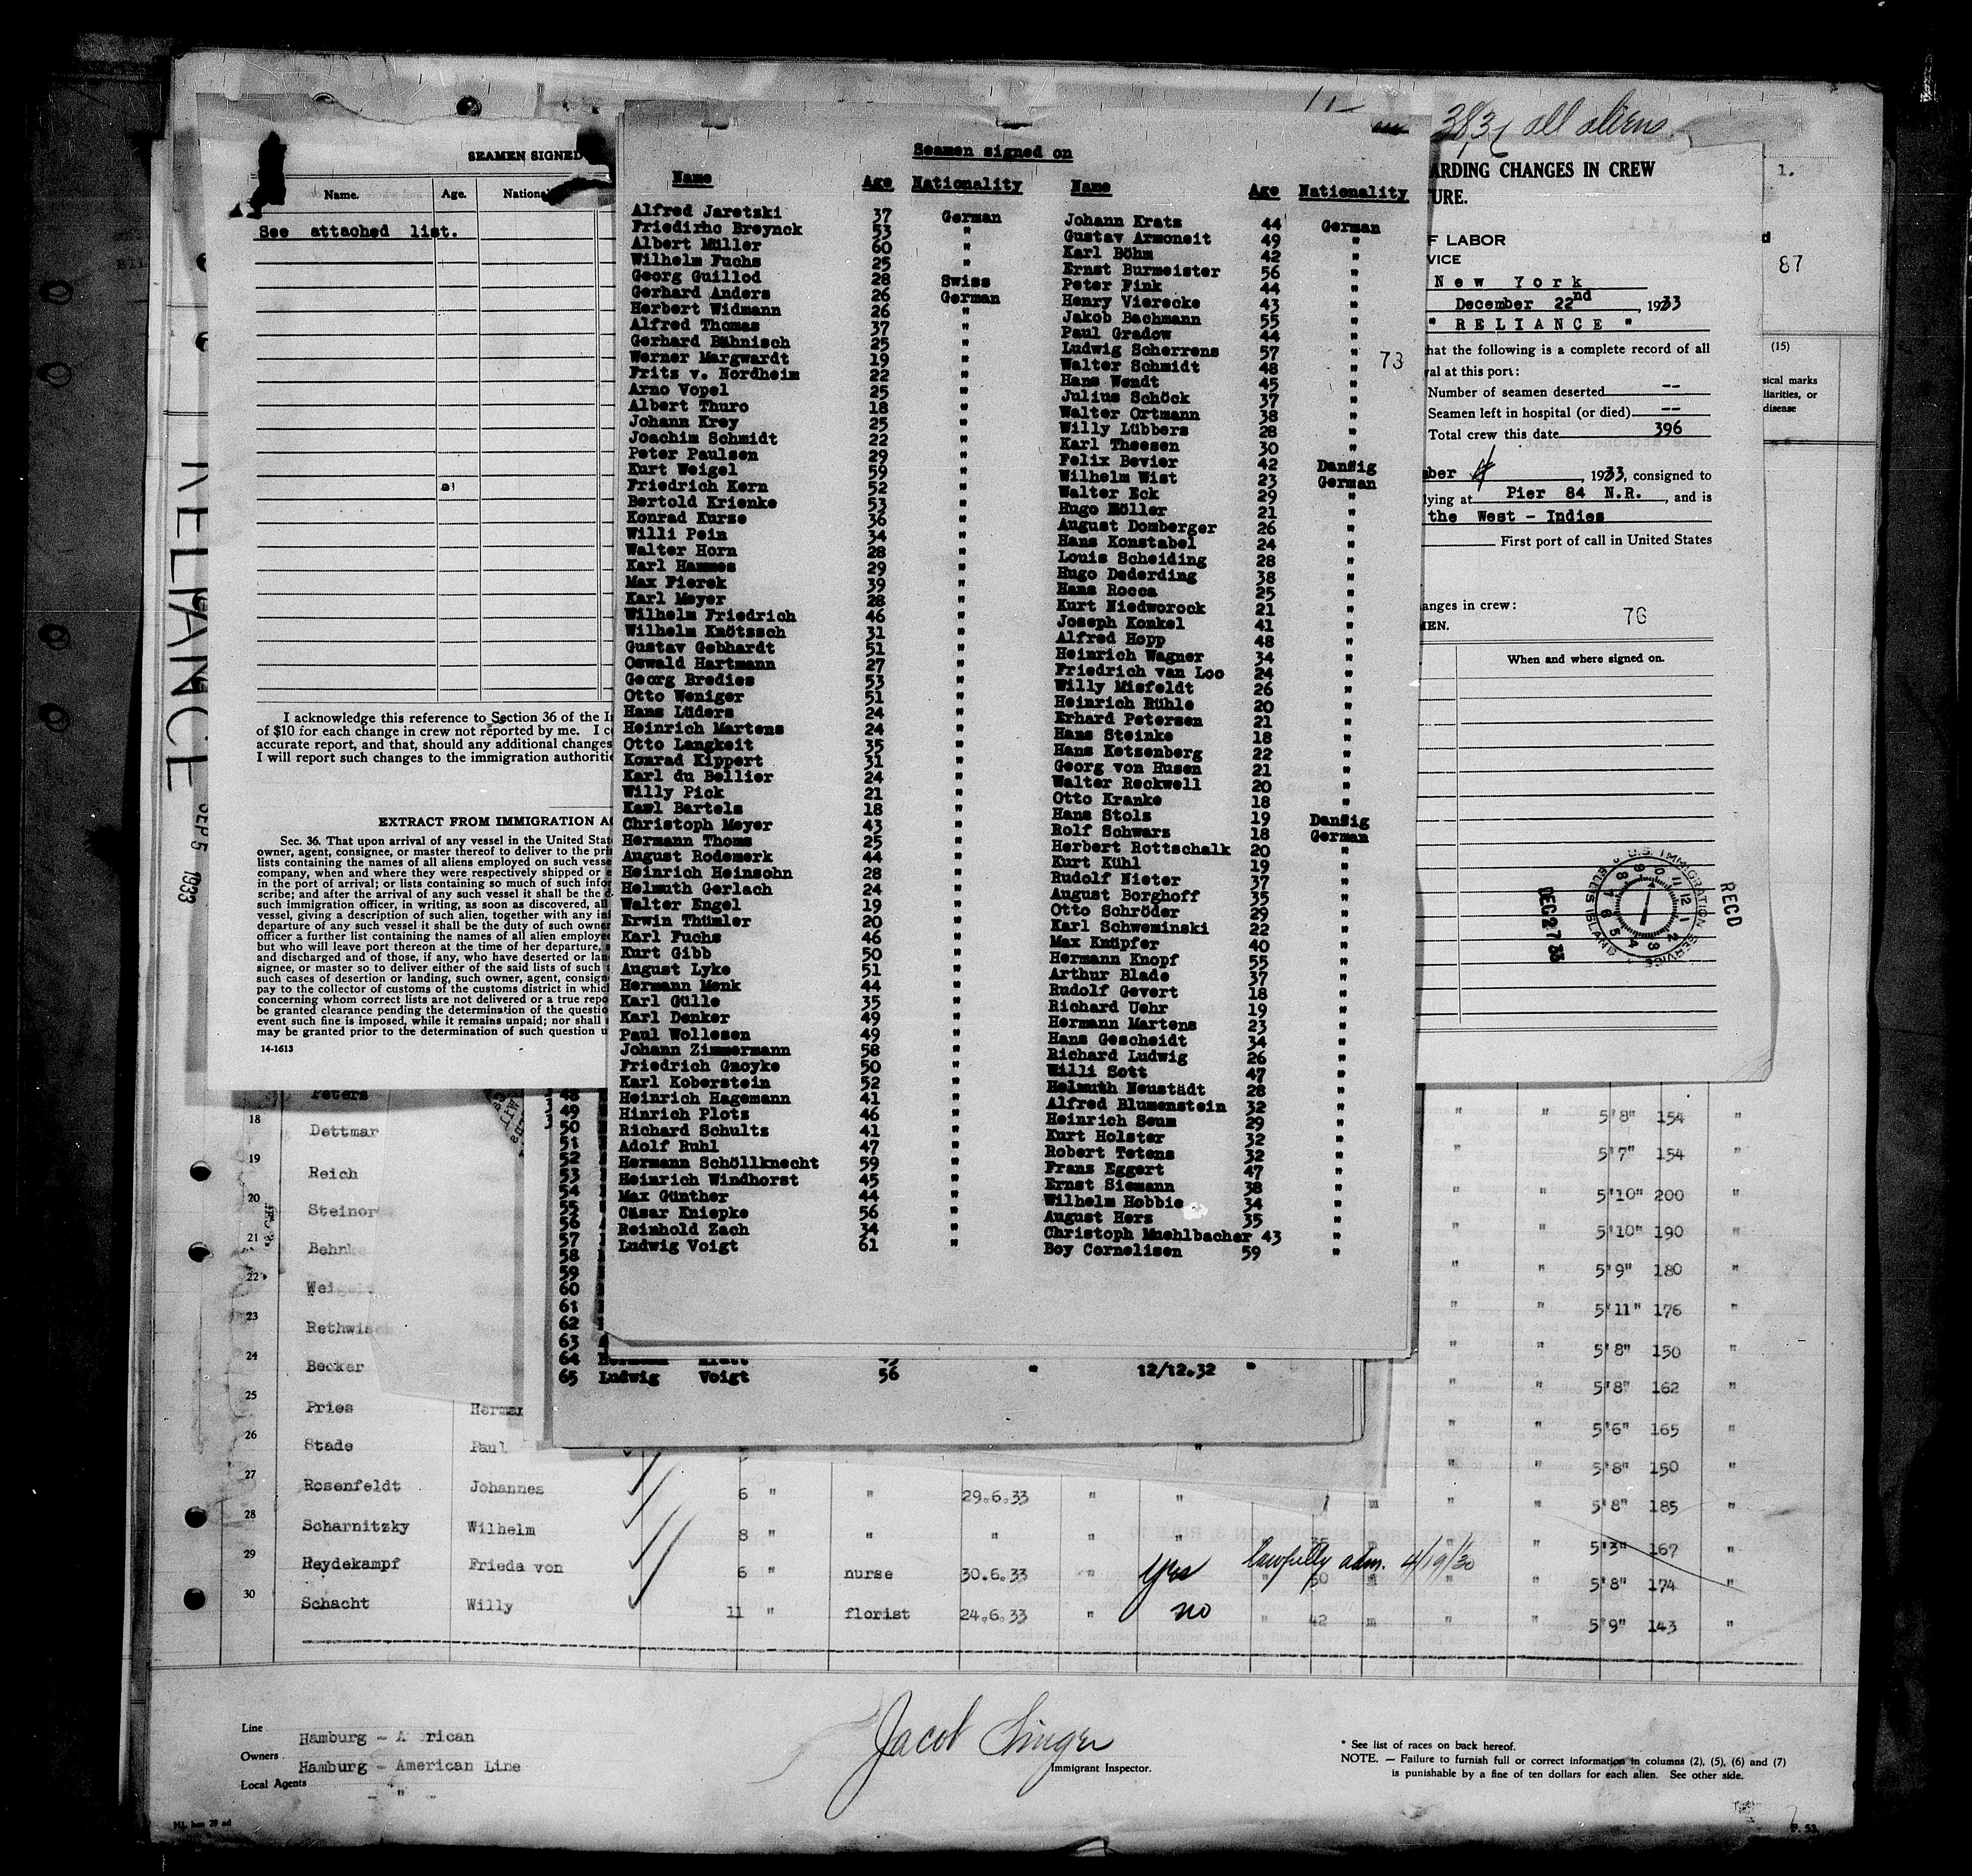 SEAMEN SIGNED
Name. Age. National
See attached list.
I acknowledge this reference to Section 36 of the
of $10 for each change in crew not reported by me. I
accurate report, and that, should any additional changes
I will report such changes to the immigration authoriti
EXTRACT FROM IMMIGRATION A
Sec. 36. That upon arrival of any vessel in the United Stat
owner, agent, consignee, or master thereof to deliver to the pri
lists containing the names of all aliens employed on such vesse
company, when and where they were respectively shipped or e
in the port of arrival; or lists containing so much of such infor
scribe; and after the arrival of any such vessel it shall be the d
such immigration officer, in writing, as soon as discovered, all
vessel, giving a description of such alien, together with any inf
departure of any such vessel it shall be the duty of such owner
officer a further list containing the names of all alien employe
but who will leave port thereon at the time of her departure,
and discharged and of those, if any, who have deserted or lan
signee, or master so to deliver either of the said lists of such
such cases of desertion or landing, such owner, agent, consign
pay to the collector of customs of the customs district in whic
concerning whom correct lists are not delivered or a true repo
be granted clearance pending the determination of the questio
event such fine is imposed, while it remains unpaid; nor shall
may be granted prior to the determination of such question u
14-1613
RELIANCE
SEP 5 1933
Seamen signed on
Name Age Nationality
Alfred Jaretzki 37 German
Friedirhc Breynck 53 "
Albert Müller 60 "
Wilhelm Fuchs 25 "
Georg Guillod 28 Swiss
Gerhard Anders 26 German
Herbert Widmann 26 "
Alfred Thomas 37 "
Gerhard Bähnisch 25 "
Werner Margwardt 19 "
Fritz v. Nordheim 22 "
Arno Vopel 25 "
Albert Thuro 18 "
Johann Krey 25 "
Joachim Schmidt 22 "
Peter Paulsen 29 "
Kurt Weigel 59 "
Friedrich Kern 52 "
Bertold Krienke 53 "
Konrad Kurse 36 "
Willi Pein 34 "
Walter Horn 28 "
Karl Hammes 29 "
Max Fierek 39 "
Karl Meyer 28 "
Wilhelm Friedrich 46 "
Wilhelm Knötzsch 31 "
Gustav Gebhardt 51 "
Oswald Hartmann 27 "
Georg Bredies 53 "
Otto Weniger 51 "
Hans Lüders 24 "
Heinrich Martens 24 "
Otto Langkeit 35 "
Konrad Kippert 31 "
Karl du Bellier 24 "
Willy Pick 21 "
Karl Bartels 18 "
Christoph Meyer 43 "
Hermann Thoms 25 "
August Rodemerk 44 "
Heinrich Heinsohn 28 "
Helmuth Gerlach 24 "
Walter Engel 19 "
Erwin Thümler 20 "
Karl Fuchs 46 "
Kurt Gibb 50 "
August Lyke 51 "
Hermann Menk 44 "
Karl Gülle 35 "
Karl Denker 49 "
Paul Wollesen 49 "
Johann Zimmermann 58 "
Friedrich Gnoyke 50 "
Karl Koberstein 52 "
Heinrich Hagemann 41 "
Hinrich Plots 46 "
Richard Schultz 41 "
Adolf Ruhl 47 "
Hermann Schöllknecht 59 "
Heinrich Windhorst 45 "
Max Günther 44 "
Cäsar Kniepke 56 "
Reinhold Zach 34 "
Ludwig Voigt 61 "
Name Age Nationality
Johann Krats 44 German
Gustav Armoneit 49 "
Karl Böhm 42 "
Ernst Burmeister 56 "
Peter Fink 44 "
Henry Vierecke 43 "
Jakob Bachmann 55 "
Paul Gradow 44 "
Ludwig Scherrens 57 "
Walter Schmidt 48 "
Hans Wendt 45 "
Julius Schöck 37 "
Walter Ortmann 38 "
Willy Lübbers 28 "
Karl Theesen 30 "
Felix Bevier 42 Danzig
Wilhelm Wist 23 German
Walter Eck 29 "
Hugo Möller 21 "
August Domberger 26 "
Hans Konstabel 24 "
Louis Scheiding 28 "
Hugo Dederding 38 "
Hans Rocca 25 "
Kurt Niedworock 21 "
Joseph Konkel 41 "
Alfred Hopp 48 "
Heinrich Wagner 34 "
Friedrich van Loo 24 "
Willy Misfeldt 26 "
Heinrich Rühle 20 "
Erhard Petersen 21 "
Hans Steinke 18 "
Hans Ketzenberg 22 "
Georg von Husen 21 "
Walter Reckwell 20 "
Otto Kranke 18 "
Hans Stols 19 Danzig
Rolf Schwarz 18 German
Herbert Rottschalk 20 "
Kurt Kühl 19 "
Rudolf Nieter 37 "
August Borghoff 35 "
Otto Schröder 29 "
Karl Schweminski 22 "
Max Knüpfer 40 "
Hermann Knopf 55 "
Arthur Blade 37 "
Rudolf Gevert 18 "
Richard Uehr 19 "
Hermann Martens 23 "
Hans Gescheidt 34 "
Richard Ludwig 26 "
Willi Sott 47 "
Helmuth Neustädt 28 "
Alfred Blumenstein 32 "
Heinrich Seum 29 "
Kurt Holster 32 "
Robert Tetens 32 "
Frans Eggert 47 "
Ernst Siemann 38 "
Wilhelm Hobbie 34 "
August Hers 35 "
Christoph Muehlbacher 43 "
Boy Cornelisen 59 "
73
3836 all aliens
ARDING CHANGES IN CREW
URE.
F LABOR
VICE
New York
December 22nd, 1933
" RELIANCE "
hat the following is a complete record of all
val at this port:
Number of seamen deserted --
Seamen left in hospital (or died) --
Total crew this date 396
mber, 1933, consigned to
lying at Pier 84 N.R., and is
the West - Indies
First port of call in United States
anges in crew:
76
MEN.
When and where signed on.
U.S. IMMIGRATION SERVICE
ELLIS ISLAND
RECD
DEC 27 33
1.
87
(15)
sical marks
liarities, or
disease
48
49
50
51
52
53
54
55
56
57
58
59
60
61
62
63
64
65 Ludwig Voigt 56 " 12/12.32 "
Peters
18 Dettmar " " 5'8" 154 "
19 Reich " " 5'7" 154 "
20 Steinor " " 5'10" 200 "
21 Behnk " " 5'10" 190 "
22 Weigel " " 5'9" 180 "
23 Rethwisch " " 5'11" 176 "
24 Becker " " 5'8" 150 "
25 Pries Herman " " 5'8" 162 "
26 Stade Paul " " 5'6" 165 "
27 Rosenfeldt Johannes 6 " " 29.6.33 " " m " " 5'8" 150 "
28 Scharnitzky Wilhelm 8 " " " " " 5'8" 185 "
5'3" 167 "
29 Heydekampf Frieda von 6 " nurse 30.6.33 " yes lawfully adm. 4/19/30 5'8" 174 "
30 Schacht Willy 11 " florist 24.6.33 " no " 42 m " " 5'9" 143 "
Line Hamburg - A rican
Owners Hamburg - American Line
Local Agents - " -
Jacob Singer
Immigrant Inspector.
* See list of races on back hereof.
NOTE. — Failure to furnish full or correct information in columns (2), (5), (6) and (7)
is punishable by a fine of ten dollars for each alien. See other side.